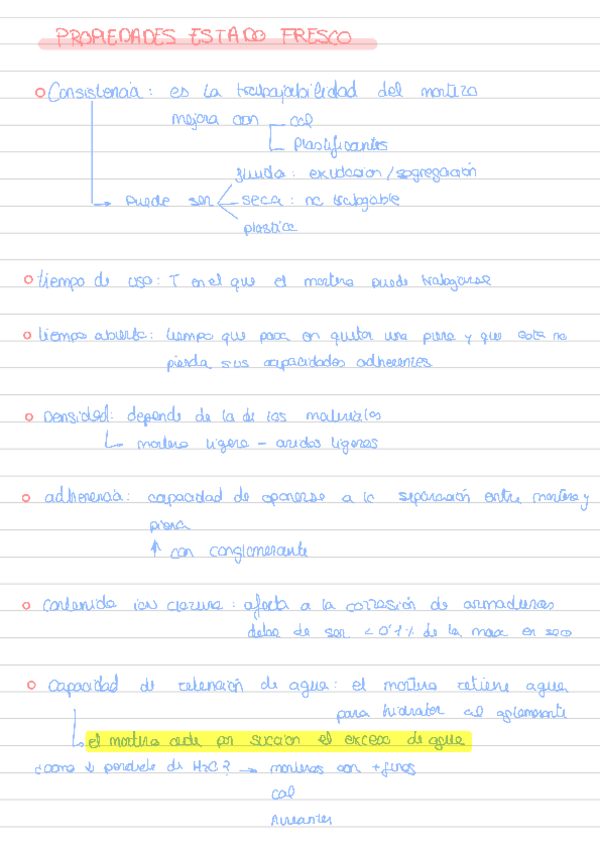 PROPIEDADES ESTADO FRESCO
Consistencia: es la trabajabilidad del mortero
mejora con cal
plastificantes
fluida: exudación/segregación
puede ser seca: no trabajable
plastica
tiempo de uso: T en el que el mortero puede trabajarse
tiempo abierto: tiempo que pasa en quitar una pieza y que esta no
pierda sus capacidades adherentes
Densidad: depende de la de los materiales
mortero ligero - aridos ligeros
adherencia: capacidad de oponerse a la separación entre mortero y
pieza
↑ con conglomerante
contenido ion cloruro: afecta a la corrosión de armaduras
debe de ser < 0'1% de la masa en seco
Capacidad de retención de agua: el mortero retiene agua
para hidratar al aglomerante
el mortero cede por succion el exceso de agua
¿como ↓ perdida de H2O? → morteros con + finos
cal
Aireantes